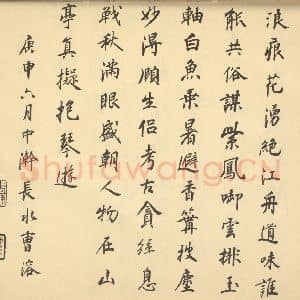 浪痕花湧絶江舟道味誰
能共俗謀紫鳳啣雲排玉
軸白魚乗暑避香篝披塵
妙得願生侣考古貪經息
戦秋滿眼盛朝人物在山
亭真擬抱琴遊
庚申六月中澣長水曹溶
Shufawang.CN